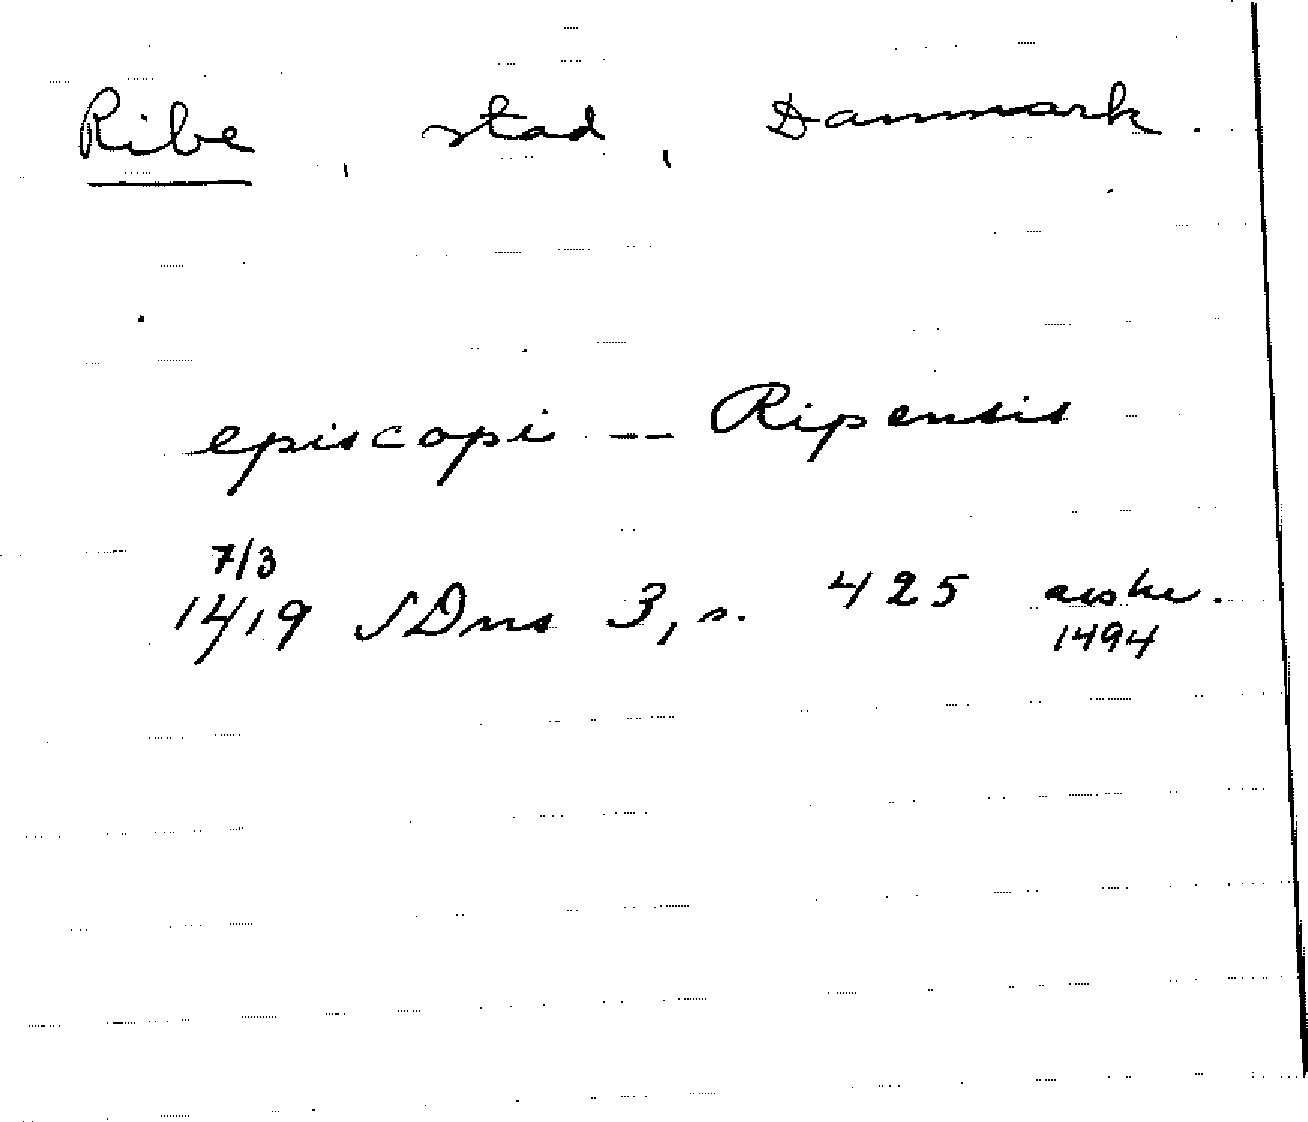 Ribe, stad, Danmark.
episcopi -- Ripensis
7/3
1419 SDns 3, s. 425 avskr.
1494